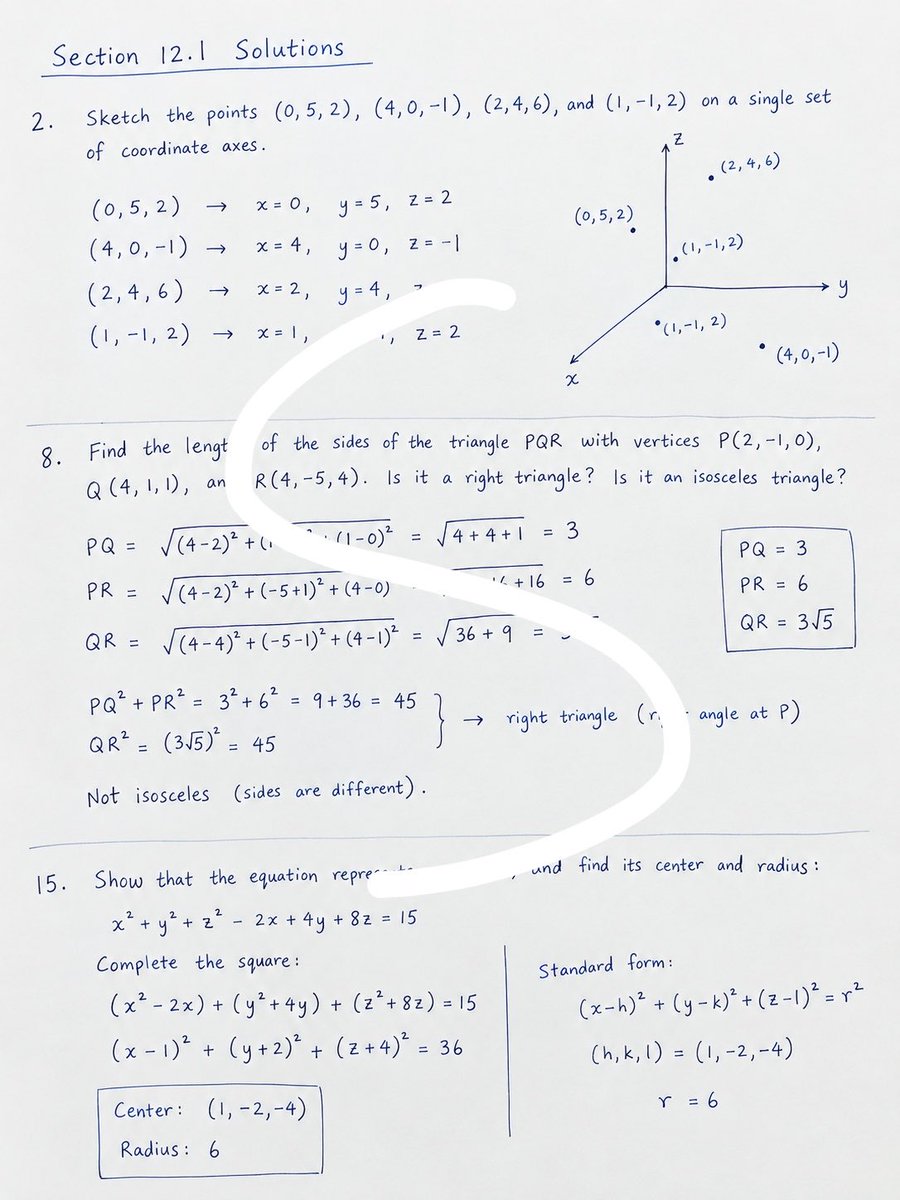 Section 12.1 Solutions
2. Sketch the points (0, 5, 2), (4, 0, -1), (2, 4, 6), and (1, -1, 2) on a single set
of coordinate axes.
(0, 5, 2) → x = 0, y = 5, z = 2
(4, 0, -1) → x = 4, y = 0, z = -1
(2, 4, 6) → x = 2, y = 4,
(1, -1, 2) → x = 1, , z = 2
z
(2, 4, 6)
(0, 5, 2)
(1, -1, 2)
y
(1, -1, 2)
(4, 0, -1)
x
8. Find the of the sides of the triangle PQR with vertices P(2, -1, 0),
Q (4, 1, 1), R(4, -5, 4). Is it a right triangle? Is it an isosceles triangle?
PQ = √(4-2)² + (1-0)² = √4+4+1 = 3
PR = √(4-2)² + (-5+1)² + (4-0) +16 = 6
QR = √(4-4)² + (-5-1)² + (4-1)² = √36 + 9 =
PQ = 3
PR = 6
QR = 3√5
PQ² + PR² = 3² + 6² = 9 + 36 = 45
QR² = (3√5)² = 45
} → right triangle ( angle at P)
Not isosceles (sides are different).
15. Show that the equation and find its center and radius:
x² + y² + z² - 2x + 4y + 8z = 15
Complete the square:
(x² - 2x) + (y² + 4y) + (z² + 8z) = 15
(x - 1)² + (y + 2)² + (z + 4)² = 36
Center: (1, -2, -4)
Radius: 6
Standard form:
(x-h)² + (y-k)² + (z-l)² = r²
(h, k, l) = (1, -2, -4)
r = 6